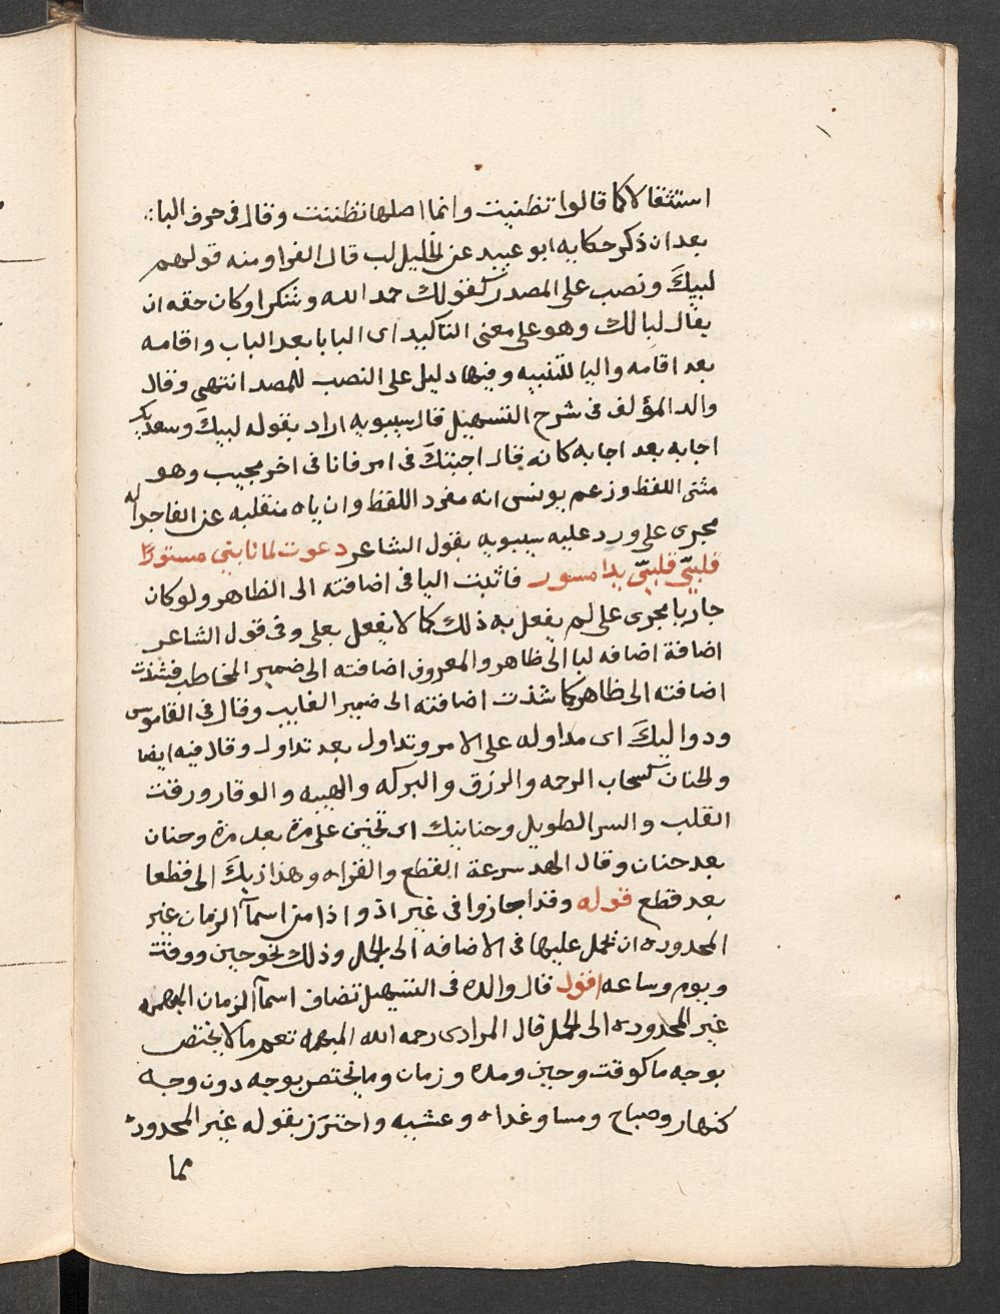 استثقالا كما قالوا تظنيت وانما اصلها تظننت وقال فى حرف البا
بعد ان ذكر حكايه ابو عبيد عن الخليل لب قال الفرا ومنه قولهم
لبيكَ ونصب على المصدر كقولك حمد الله وشكرا وكان حقه ان
يقال لبا لك وهو على معنى التاكيد اى البابا بعد الباب واقامه
بعد اقامه واليا للتثنيه وفيها دليل على النصب للمصدر انتهى وقال
والد المؤلف فى شرح التسهيل قال سيبويه اراد بقوله لبيكَ وسعديك
اجابه بعد اجابه كانه قال اجبتكَ فى امر فانا فى اخر مجيب وهو
مثنى اللفظ وزعم يونس انه مفرد اللفظ وان ياه منقلبه عن الفا جرا له
مجرى على ورد عليه سيبويه بقول الشاعر دعوت لما نابنى مستورا
فلبىّ فلبىّ يدا مسور فاثبت اليا فى اضافته الى الظاهر ولو كان
جاريا مجرى على لم يفعل به ذلك كما لا يفعل بعلى وفى قول الشاعر
اضافة اضافه لبا الى ظاهر والمعروف اضافته الى ضمير المخاطب فشذت
اضافته الى ظاهر كما شذت اضافته الى ضمير الغايب وقال فى القاموس
ودواليكَ اى مداوله على الامر وتداول بعد تداول وقال فيه ايضا
والحنان كسحاب الرحمه والرزق والبركه والهيبه والوقار ورقت
القلب والسر الطويل وحنانيك اى تحنن على مرة بعد مرة وحنان
بعد حنان وقال الهد سرعة القطع والقراه وهذاذيكَ اى قطعا
بعد قطع قوله وقد اجازوا فى غير اذ واذا من اسمآ الزمان غير
المحدوده ان تحمل عليها فى الاضافه الى الجمل وذلك نحو حين ووقت
ويوم وساعه اقول قال والده فى التسهيل تضاف اسمآ الزمان المبهمه
غير المحدوده الى الجمل قال المرادى رحمه الله المبهمه تعم ما لا يختص
بوجه ما كوقت وحين ومده وزمان وما يختص بوجه دون وجه
كنهار وصباح ومسا وغداه وعشيه واحترز بقوله غير المحدوده
مما